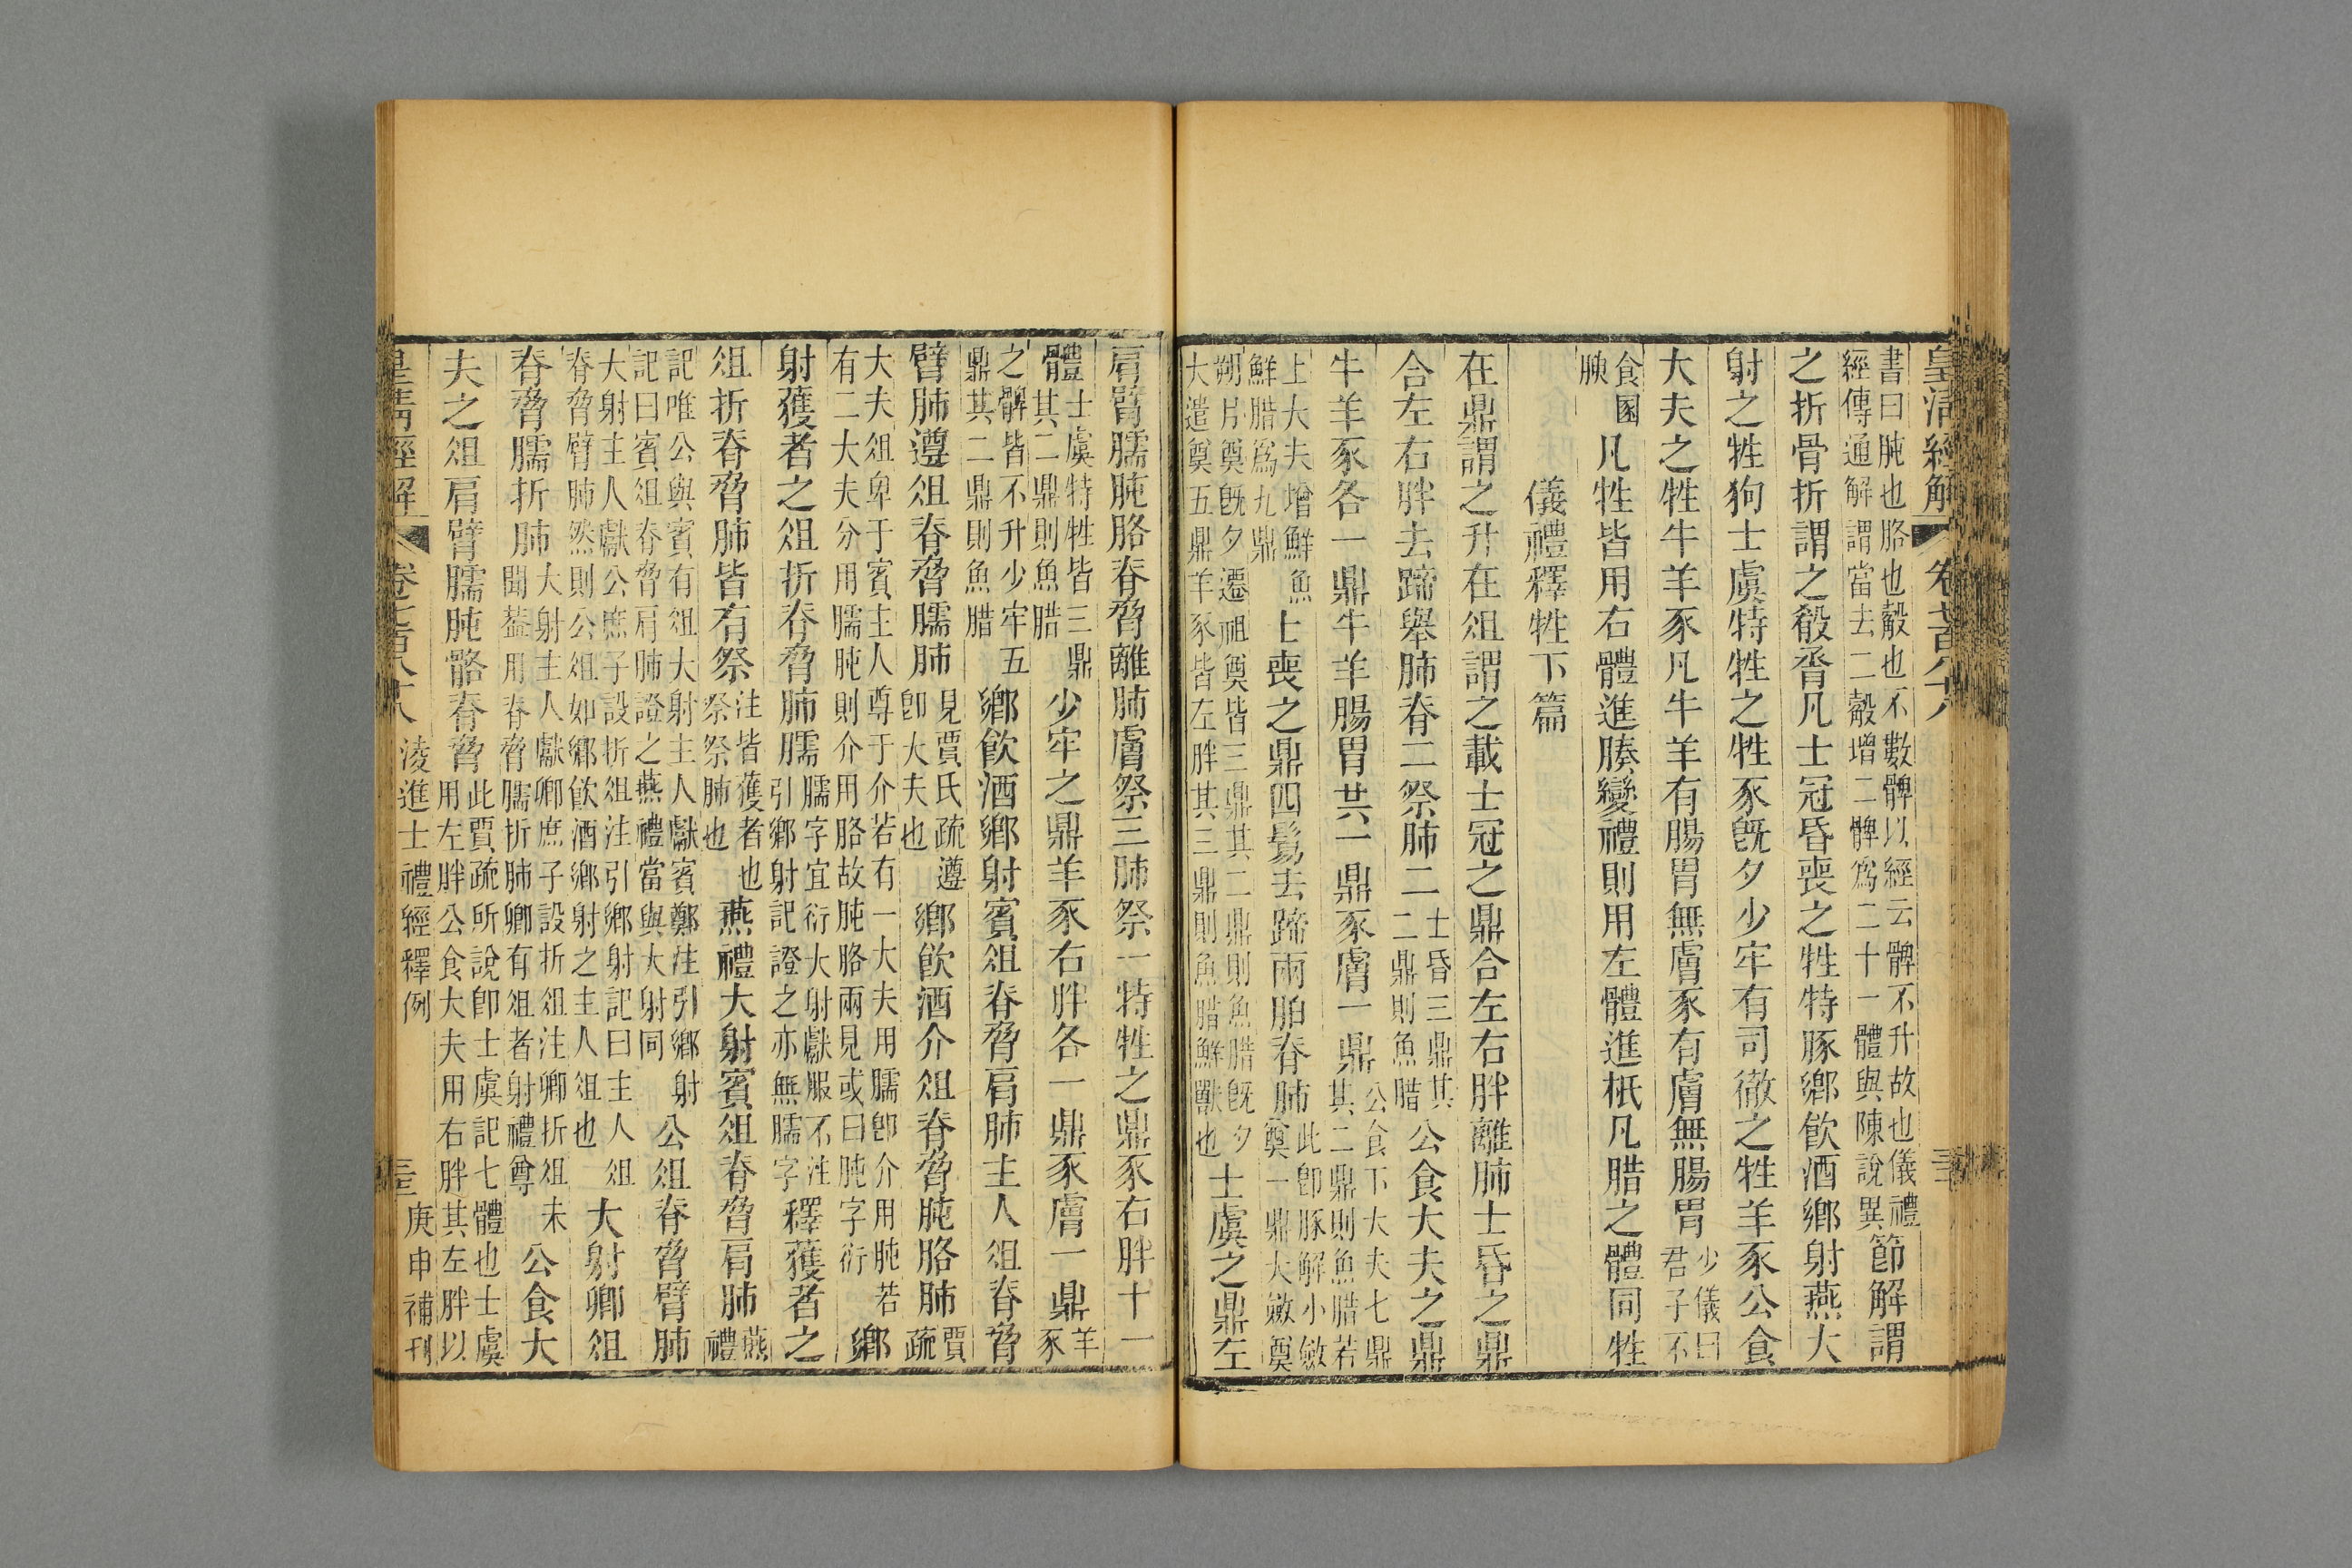 皇清經解
卷七百八十八
書曰肫也胳也觳也不數髀以經云髀不升故也儀禮
經傳通解謂當去二觳增二髀爲二十一體與陳說異
節解謂
之折骨折謂之殽脀凡士冠昏喪之牲特豚鄉飲酒鄉射燕大
射之牲狗士虞特牲之牲豕旣夕少牢有司徹之牲羊豕公食
大夫之牲牛羊豕凡牛羊有腸胃無膚豕有膚無腸胃
少儀曰
君子不
食圂
腴
凡牲皆用右體進腠變禮則用左體進柢凡腊之體同牲
儀禮釋牲下篇
在鼎謂之升在俎謂之載士冠之鼎合左右胖離肺士昏之鼎
合左右胖去蹄舉肺脊二祭肺二
士昏三鼎其
二鼎則魚腊
公食大夫之鼎
牛羊豕各一鼎牛羊腸胃共一鼎豕膚一鼎
公食下大夫七鼎
其二鼎則魚腊若
上大夫增鮮魚
鮮腊爲九鼎
士喪之鼎四鬄去蹄兩胉脊肺
此卽豚解小斂
奠一鼎大斂奠
朔月奠旣夕遷祖奠皆三鼎其二鼎則魚腊旣夕
大遣奠五鼎羊豕皆左胖其三鼎則魚腊鮮獸也
士虞之鼎左
肩臂臑肫胳脊脅離肺膚祭三肺祭一特牲之鼎豕右胖十一
體
士虞特牲皆三鼎
其二鼎則魚腊
少牢之鼎羊豕右胖各一鼎豕膚一鼎
羊
豕
之髀皆不升少牢五
鼎其二鼎則魚腊
鄉飲酒鄉射賓俎脊脅肩肺主人俎脊脅
臂肺遵俎脊脅臑肺
見賈氏疏遵
卽大夫也
鄉飲酒介俎脊脅肫胳肺
賈
疏
大夫俎卑于賓主人尊于介若有一大夫用臑卽介用肫若
有二大夫分用臑肫則介用胳故肫胳兩見或曰肫字衍
鄉
射獲者之俎折脊脅肺臑
臑字宜衍大射獻服不注
引鄉射記證之亦無臑字
釋獲者之
俎折脊脅肺皆有祭
注皆獲者也
祭祭肺也
燕禮大射賓俎脊脅肩肺
燕
禮
記唯公與賓有俎大射主人獻賓鄭注引鄉射
記曰賓俎脊脅肩肺證之燕禮當與大射同
公俎脊脅臂肺
大射主人獻公庶子設折俎注引鄉射記曰主人俎
脊脅臂肺然則公俎如鄉飲酒鄉射之主人俎也
大射卿俎
脊脅臑折肺
大射主人獻卿庶子設折俎注卿折俎未
聞蓋用脊脅臑折肺卿有俎者射禮尊
公食大
夫之俎肩臂臑肫骼脊脅
此賈疏所說卽士虞記七體也士虞
用左胖公食大夫用右胖其左胖以
皇清經解
卷七百八十八
淩進士禮經釋例
三
庚申補刊